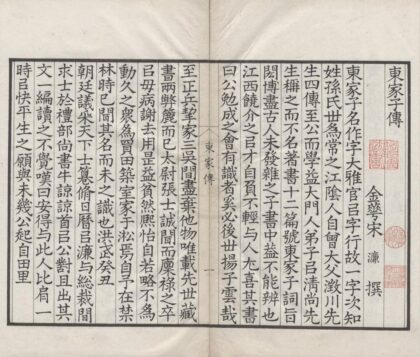 東家子傳
金華宋 濂 撰
東家子名作字大雅官呂字行故一字次知
姓孫氏世為常之江陰人自曾大父澂川先
生四傳至公而學益大門人弟子呂清尚先
生稱之而不名著書十二篇號東家子詞旨
閎博盡古人未發雜之子書中益不能辨也
江西饒介之呂才自負不輕與人尤喜其書
曰公勉成之會有識者奚必後世揚子雲哉
至正兵亂挈家三吳間盡棄他物唯載先世藏
書兩簏而已太尉張士誠聞而廩祿之卒
呂母病謝去用是益貧然熙怡自若略不為
動久之眾為買田築室家于淞焉自予在禁
林時已聞其名而未之識也洪武癸丑
朝廷議采天下士纂脩日曆呂濂與總裁間
求士於禮部尚書牛諒諒首呂公對且出其
文一編讀之不覺嘆曰安得與此人比肩一
時呂快平生之願與未幾公起自田里
東家傳
一